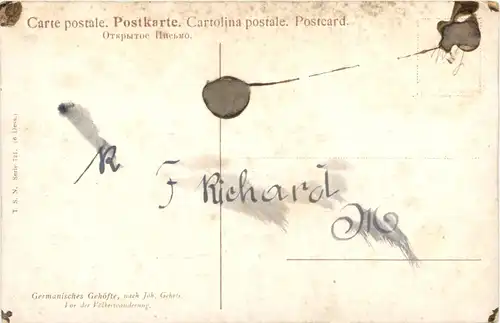 Carte postale. Postkarte. Cartolina postale. Postcard.
Открытое Письмо.
T. S. N. Serie
R F Richard M
Germanisches Gehöfte, nach Joh. Gehrts
Vor der Völkerwanderung.